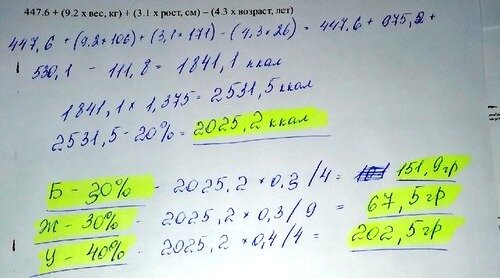 447.6 + (9.2 x вес, кг) + (3.1 x рост, см) – (4.3 x возраст, лет)
447,6 + (9,2 × 106) + (3,1 × 171) - (4,3 × 26) = 447,6 + 975,2 +
530,1 - 111,8 = 1841,1 ккал
1841,1 × 1,375 = 2531,5 ккал
2531,5 - 20% = 2025,2 ккал
Б - 30% - 2025,2 * 0,3 / 4 = 151,9 гр
Ж - 30% - 2025,2 * 0,3 / 9 = 67,5 гр
У - 40% - 2025,2 * 0,4 / 4 = 202,5 гр